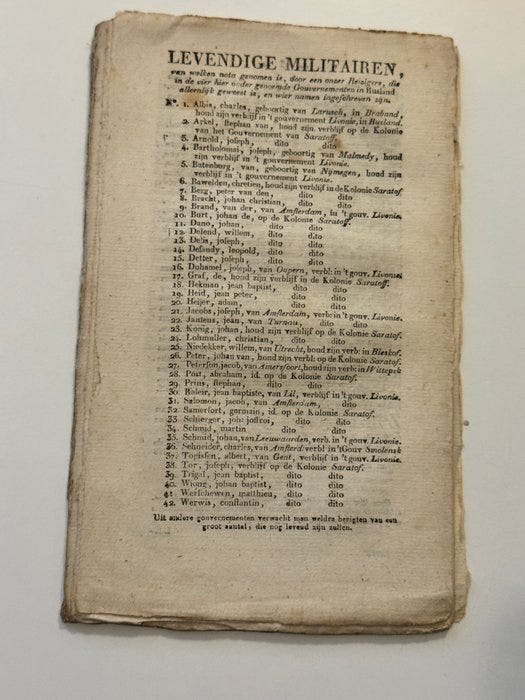 LEVENDIGE MILITAIREN,
van welken nota genomen is, door een onzer Reizigers, die
in de vier hier onder genoemde Gouvernementen in Rusland
alleenlijk geweest is, en wier namen ingeschreven zijn.
No. 1. Albis, charles, geboortig van Larusch, in Braband,
houd zijn verblijf in 't gouvernement Livonie, in Rusland.
2. Arkel, stephan van, houd zijn verblijf op de Kolonie
van het Gouvernement van Saratoff.
3. Arnold, joseph, dito dito
4. Bartholomai, joseph, geboortig van Malmedy, houd
zijn verblijf in 't gouvernement Livonie.
5. Batenburg, van, geboortig van Nijmegen, houd zijn
verblijf in 't gouvernement Livonie.
6. Bawelden, chretien, houd zijn verblijf in de Kolonie Saratof
7. Berg, peter van den, dito dito
8. Bracht, johan christian, dito dito
9. Brand, van der, van Amsterdam, in 't gouv. Livonie.
10. Burt, johan de, op de Kolonie Saratoff.
11. Dano, johan, dito dito
12. Delend, willem, dito dito
13. Delis, joseph, dito dito
14. Desandy, leopold, dito dito
15. Detter, joseph, dito dito
16. Duhamel, joseph, van Oupern, verbl: in 't gouv. Livonie
17. Graf, de, houd zijn verblijf in de Kolonie Saratoff.
18. Hekman, jean baptist, dito dito
19. Heid, jean peter, dito dito
20. Heijer, adam, dito dito
21. Jacobs, joseph, van Amsterdam, verb: in 't gouv. Livonie.
22. Jantens, jean, van Turnau, dito dito
23. Konig, johan, houd zijn verblijf op de Kolonie Saratof.
24. Lohmuller, christian, dito dito
25. Niedekker, willem, van Utrecht, houd zijn verb: in Bleskof.
26. Peter, johan van, houd zijn verbl: op de Kolonie Saratof.
27. Peterson, jacob, van Amersfoort, houd zijn verb: in Wittepsk
28. Post, abraham, id. op de Kolonie Saratof.
29. Prins, stephan, dito dito
30. Raleir, jean baptiste, van Lil, verblijf in 't gouv. Livonie.
31. Szlomon, jacob, van Amsterdam, dito
32. Samerfort, germain, id. op de Kolonie Saratof.
33. Schierger, joh: jostros, dito dito
34. Schmid, martin dito dito
35. Schmid, johan, van Leeuwaarden, verb. in 't gouv. Livonie.
36. Schneider, charles, van Amsterd: verbl: in 't Gouv Smolensk
37. Topissen, albert, van Gent, verblijf in 't gouv. Livonie.
38. Tor, joseph, verblijf op de Kolonie Saratof.
39. Trigal, jean baptist, dito dito
40. Wiong, johan baptist, dito dito
41 Werschewen, matthieu, dito dito
42. Werwis, constantin, dito dito
Uit andere gouvernementen verwacht men weldra berigten van een
groot aantal, die nog levend zijn zullen.